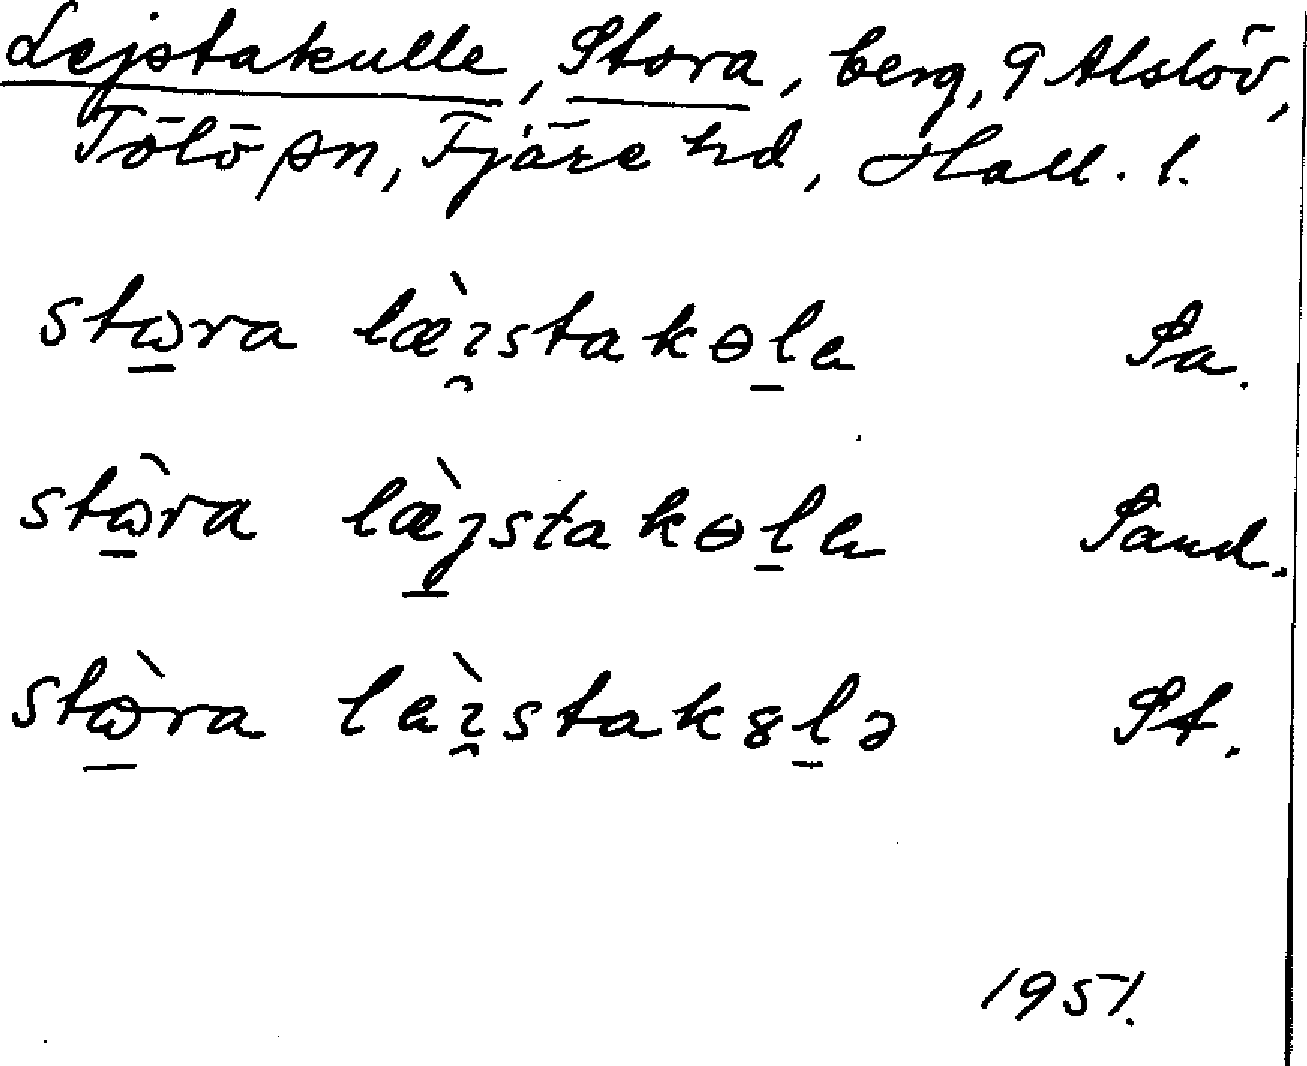 Lejstakulle, Stora, berg, 9 Alslöv,
Tölö sn, Fjäre hd, Hall. l.
stω̲ra læ̀ı̯stakɵl̲e Sa.
stὼ̲ra læ̀ȷ̲stakɵl̲e Sand.
stὼ̲ra leı̯̀stak8l̲ə St.
1951.